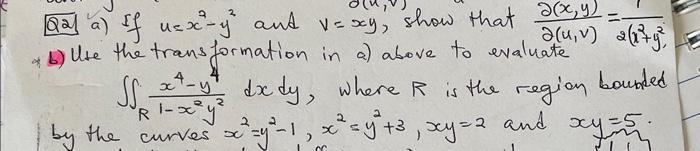 Q2 a) If u = x² - y² and v = xy, show that ∂(x,y)/∂(u,v) = 1/2(x²+y²),
b) Use the transformation in a) above to evaluate
∬_R x⁴ - y⁴ / 1 - x²y² dx dy, where R is the region bounded
by the curves x² = y² - 1, x² = y² + 3, xy = 2 and xy = 5.